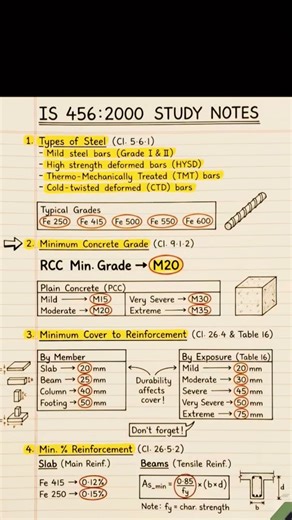 IS 456:2000 STUDY NOTES
1. Types of Steel (Cl. 5·6·1)
- Mild steel bars (Grade I & II)
- High strength deformed bars (HYSD)
- Thermo-Mechanically Treated (TMT) bars
- Cold-twisted deformed (CTD) bars
Typical Grades
Fe 250 Fe 415 Fe 500 Fe 550 Fe 600
2. Minimum Concrete Grade (Cl. 9·1·2)
RCC Min. Grade → M20
Plain Concrete (PCC)
Mild → M15 Very Severe → M30
Moderate → M20 Extreme → M35
3. Minimum Cover to Reinforcement (Cl. 26·4 & Table 16)
By Member
Slab → 20 mm
Beam → 25 mm
Column → 40 mm
Footing → 50 mm
Durability
affects
cover!
By Exposure (Table 16)
Mild → 20 mm
Moderate → 30 mm
Severe → 45 mm
Very Severe → 50 mm
Extreme → 75 mm
Don't forget!
4. Min. % Reinforcement (Cl. 26·5·2)
Slab (Main Reinf.)
Fe 415 → 0·12%
Fe 250 → 0·15%
Beams (Tensile Reinf.)
As_min = 0·85/fy × (b×d)
Note: fy = char. strength
d
b